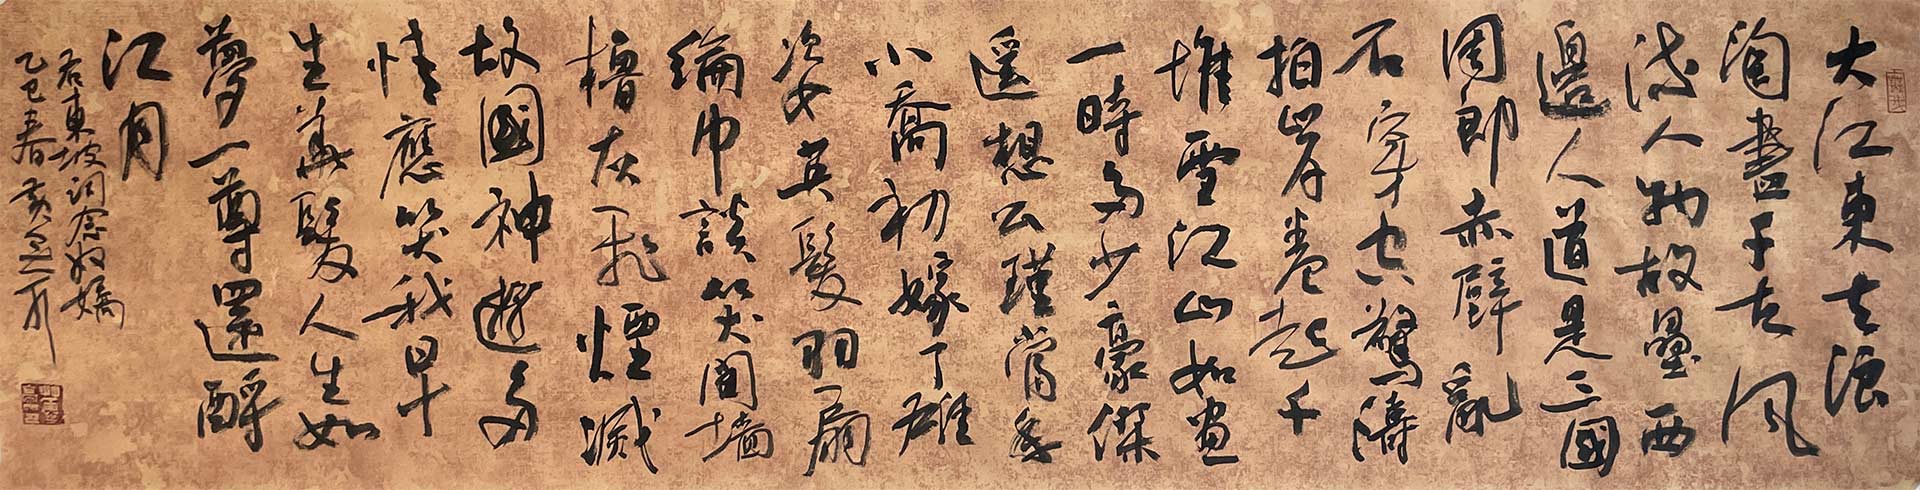 大江東去浪
淘盡千古風
流人物故壘西
邊人道是三國
周郎赤壁亂
石穿空驚濤
拍岸卷起千
堆雪江山如畫
一時多少豪傑
遥想公瑾當年
小喬初嫁了雄
姿英髮羽扇
綸巾談笑間墻
櫓灰飛煙滅
故國神遊多
情應笑我早
生華髮人生如
夢一尊還酹
江月
右東坡詞念奴嬌
乙巳春